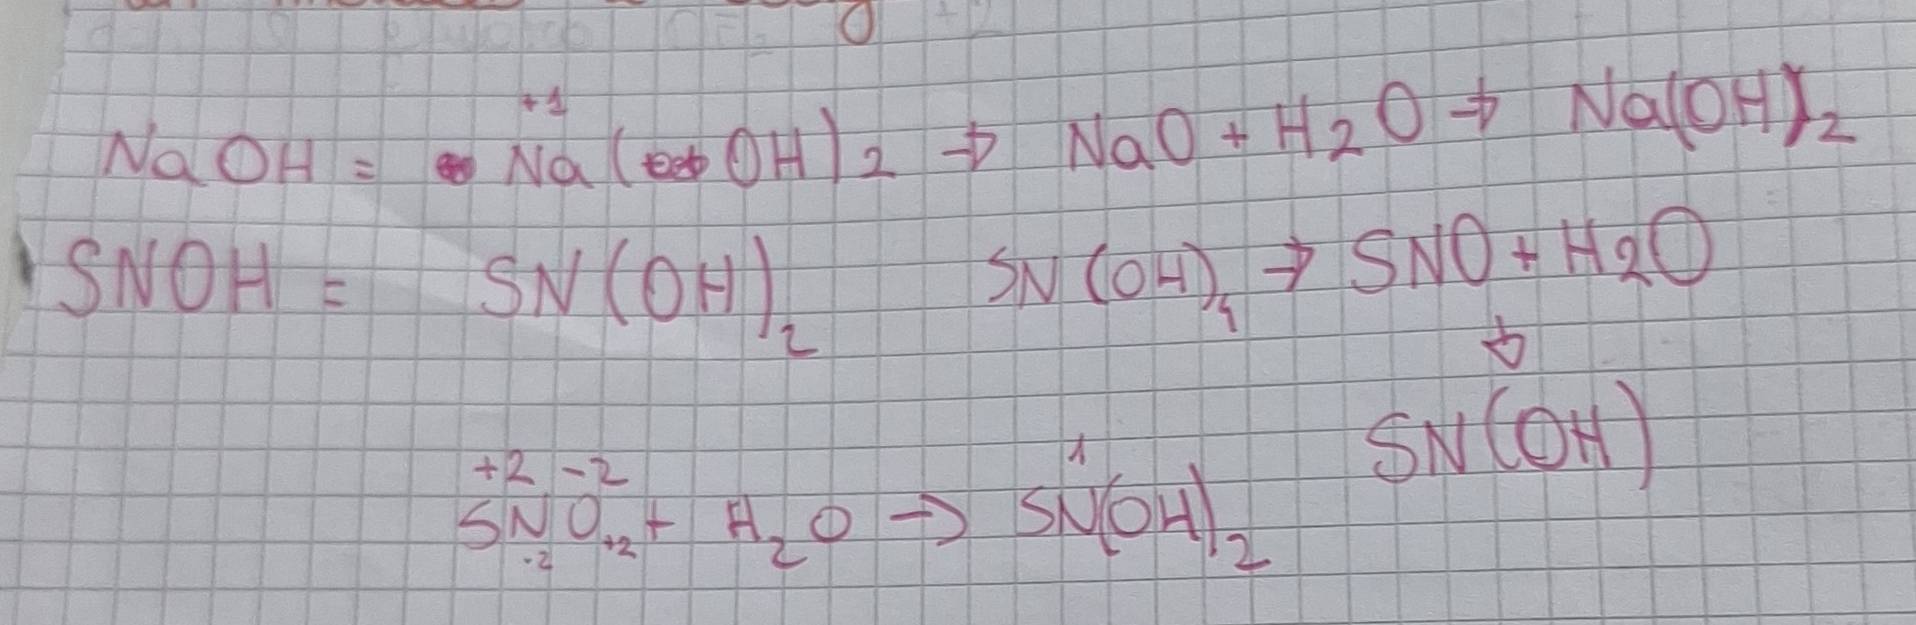 +1
NaOH = Na(OH)2 → NaO + H2O → Na(OH)2
SNOH = SN(OH)2 SN(OH)4 → SNO + H2O
↓
SN(OH)
+2 -2 1
SNO+2 + H2O → SN(OH)2
-2